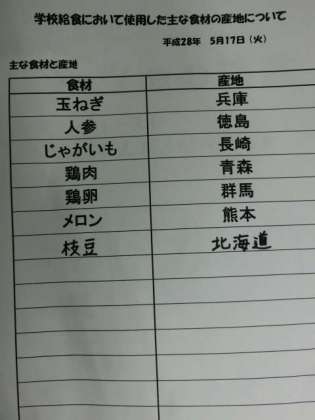 学校給食において使用した主な食材の産地について
平成28年 5月17日（火）
主な食材と産地
食材 産地
玉ねぎ 兵庫
人参 徳島
じゃがいも 長崎
鶏肉 青森
鶏卵 群馬
メロン 熊本
枝豆 北海道